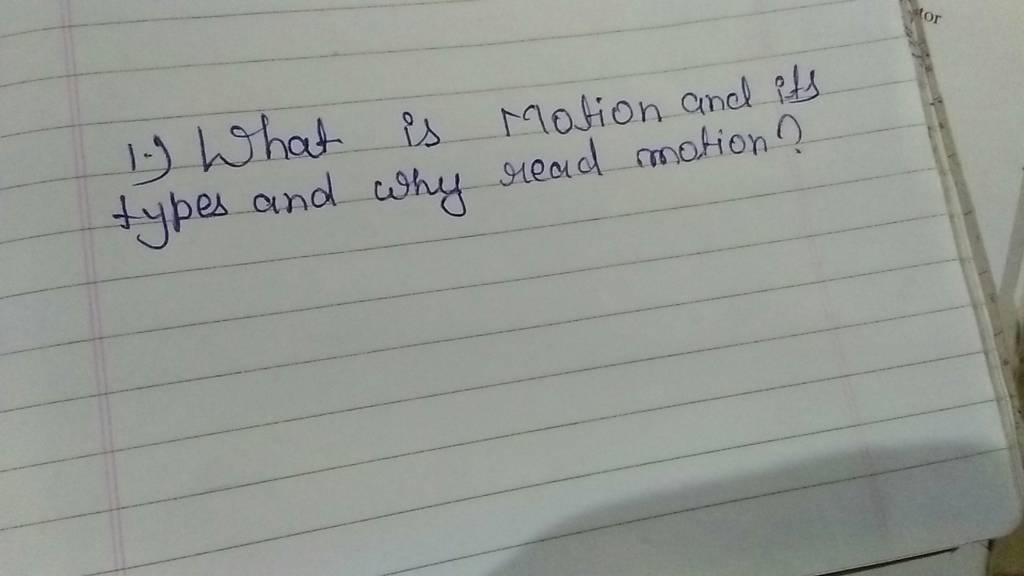 1.) What is Motion and its
types and why read motion?